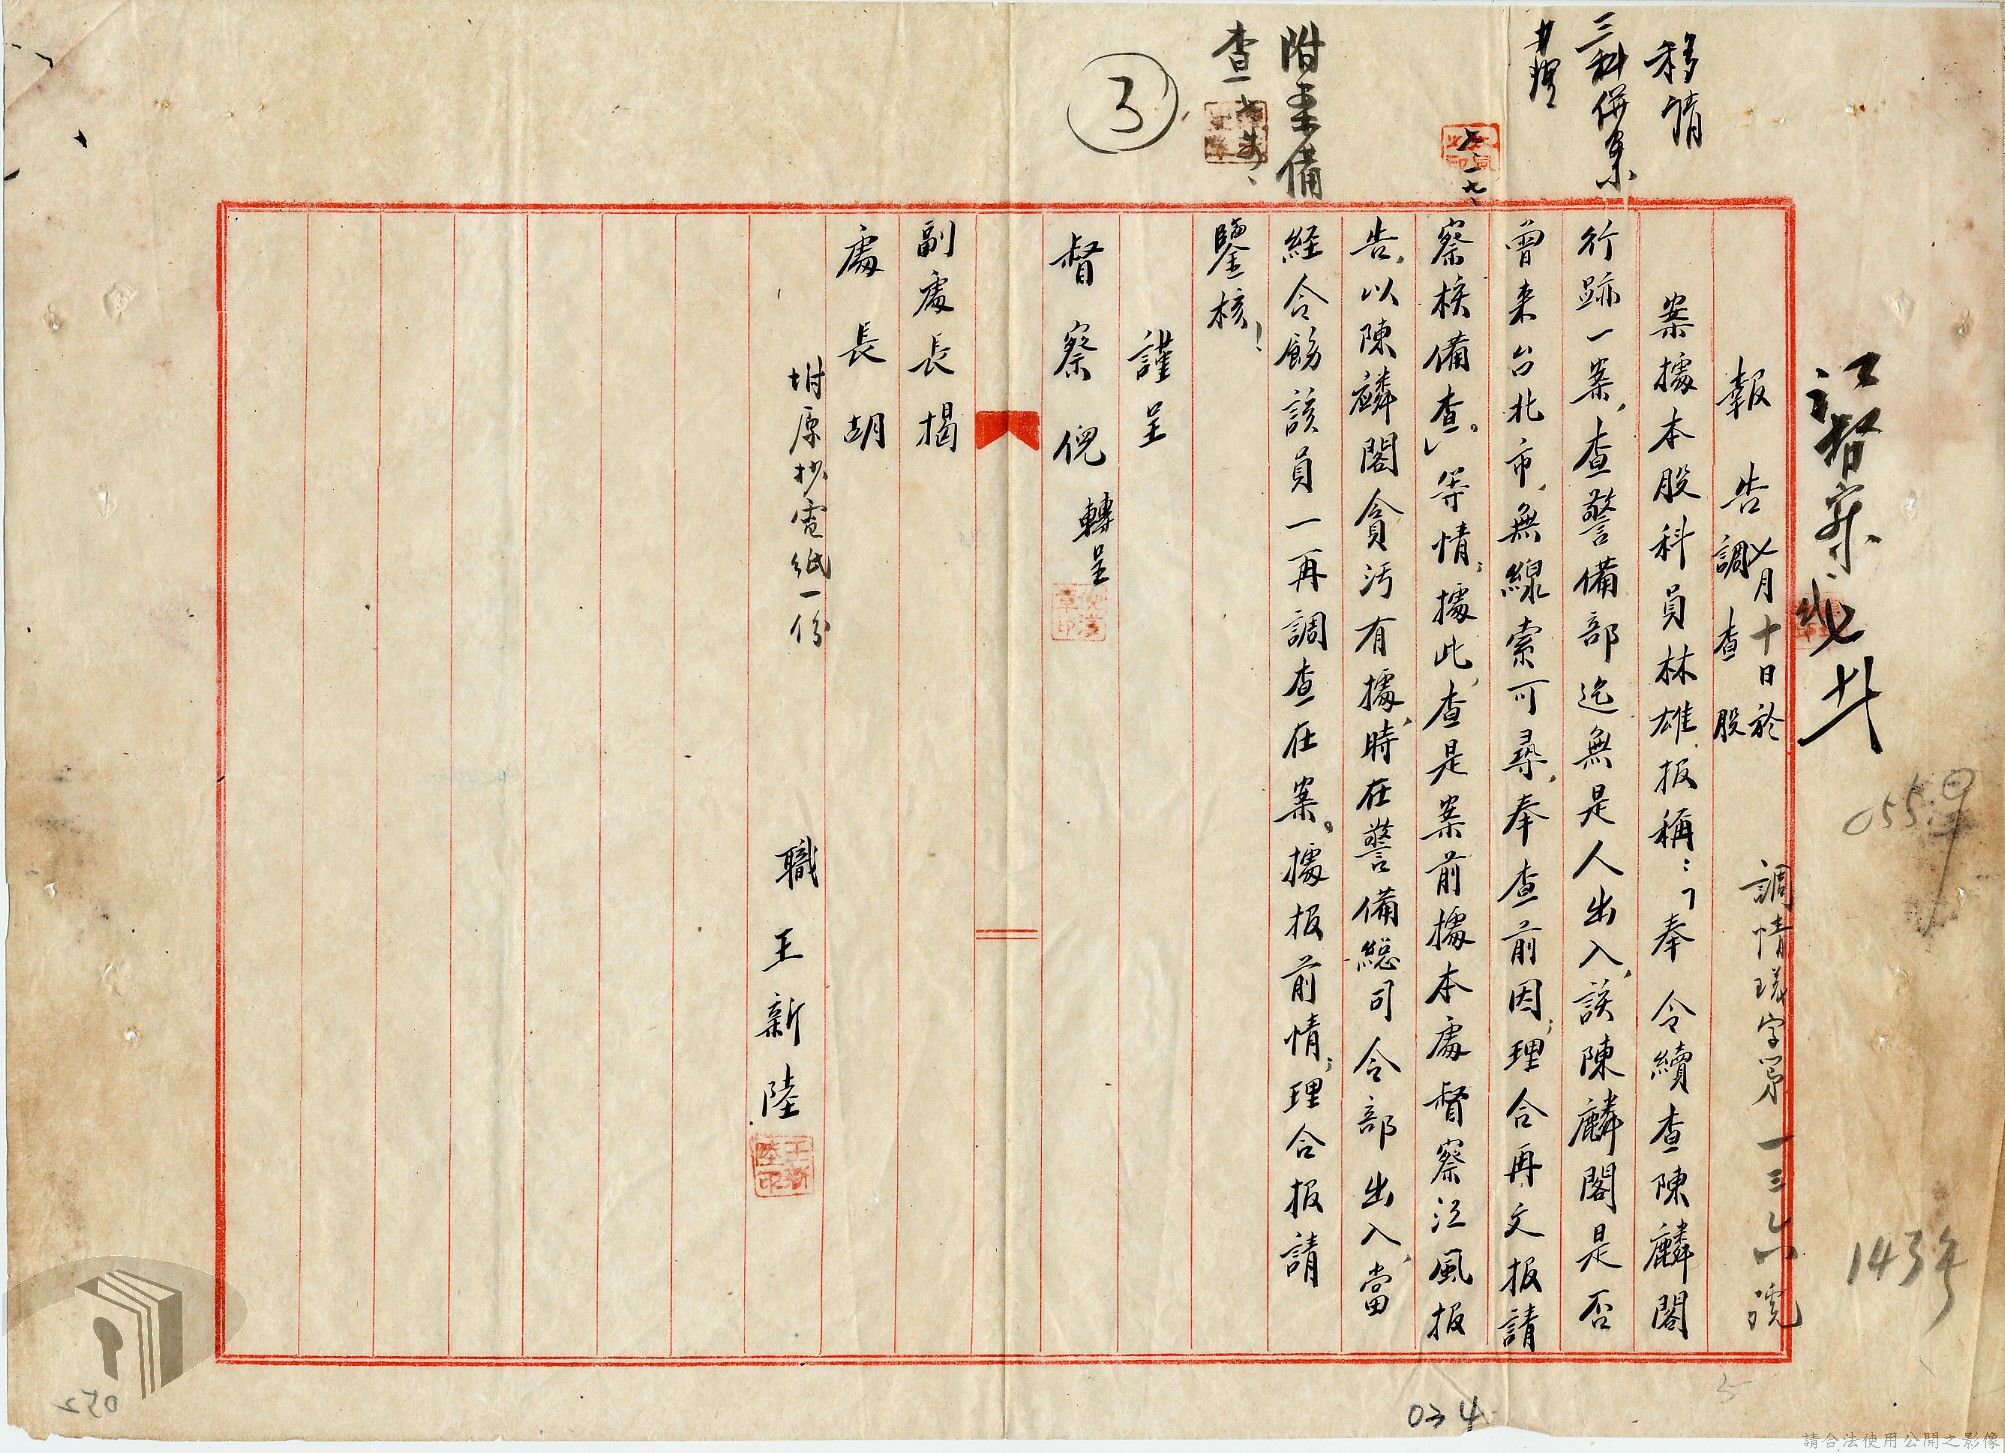 移請
三科併案
附案備
查
3
報告
七月十日於
調查股
調情瑛字第一三六號
案據本股科員林雄报稱：「奉 令續查陳麟閣
行跡一案，查警備部迄無是人出入，該陳麟閣是否
曾来台北市，無線索可尋，奉查前因，理合再文报請
察核備查。」等情，據此，查是案前據本處督察江風报
告，以陳麟閣貪污有據，時在警備總司令部出入，當
経令飭該員一再調查在案。據报前情，理合报請
鑒核！
謹呈
督察倪 轉呈
副處長揭
處長胡
坿原抄電紙一份
職王新陸
王新陸印
0559
1434
034
052
請合法使用公開之影像